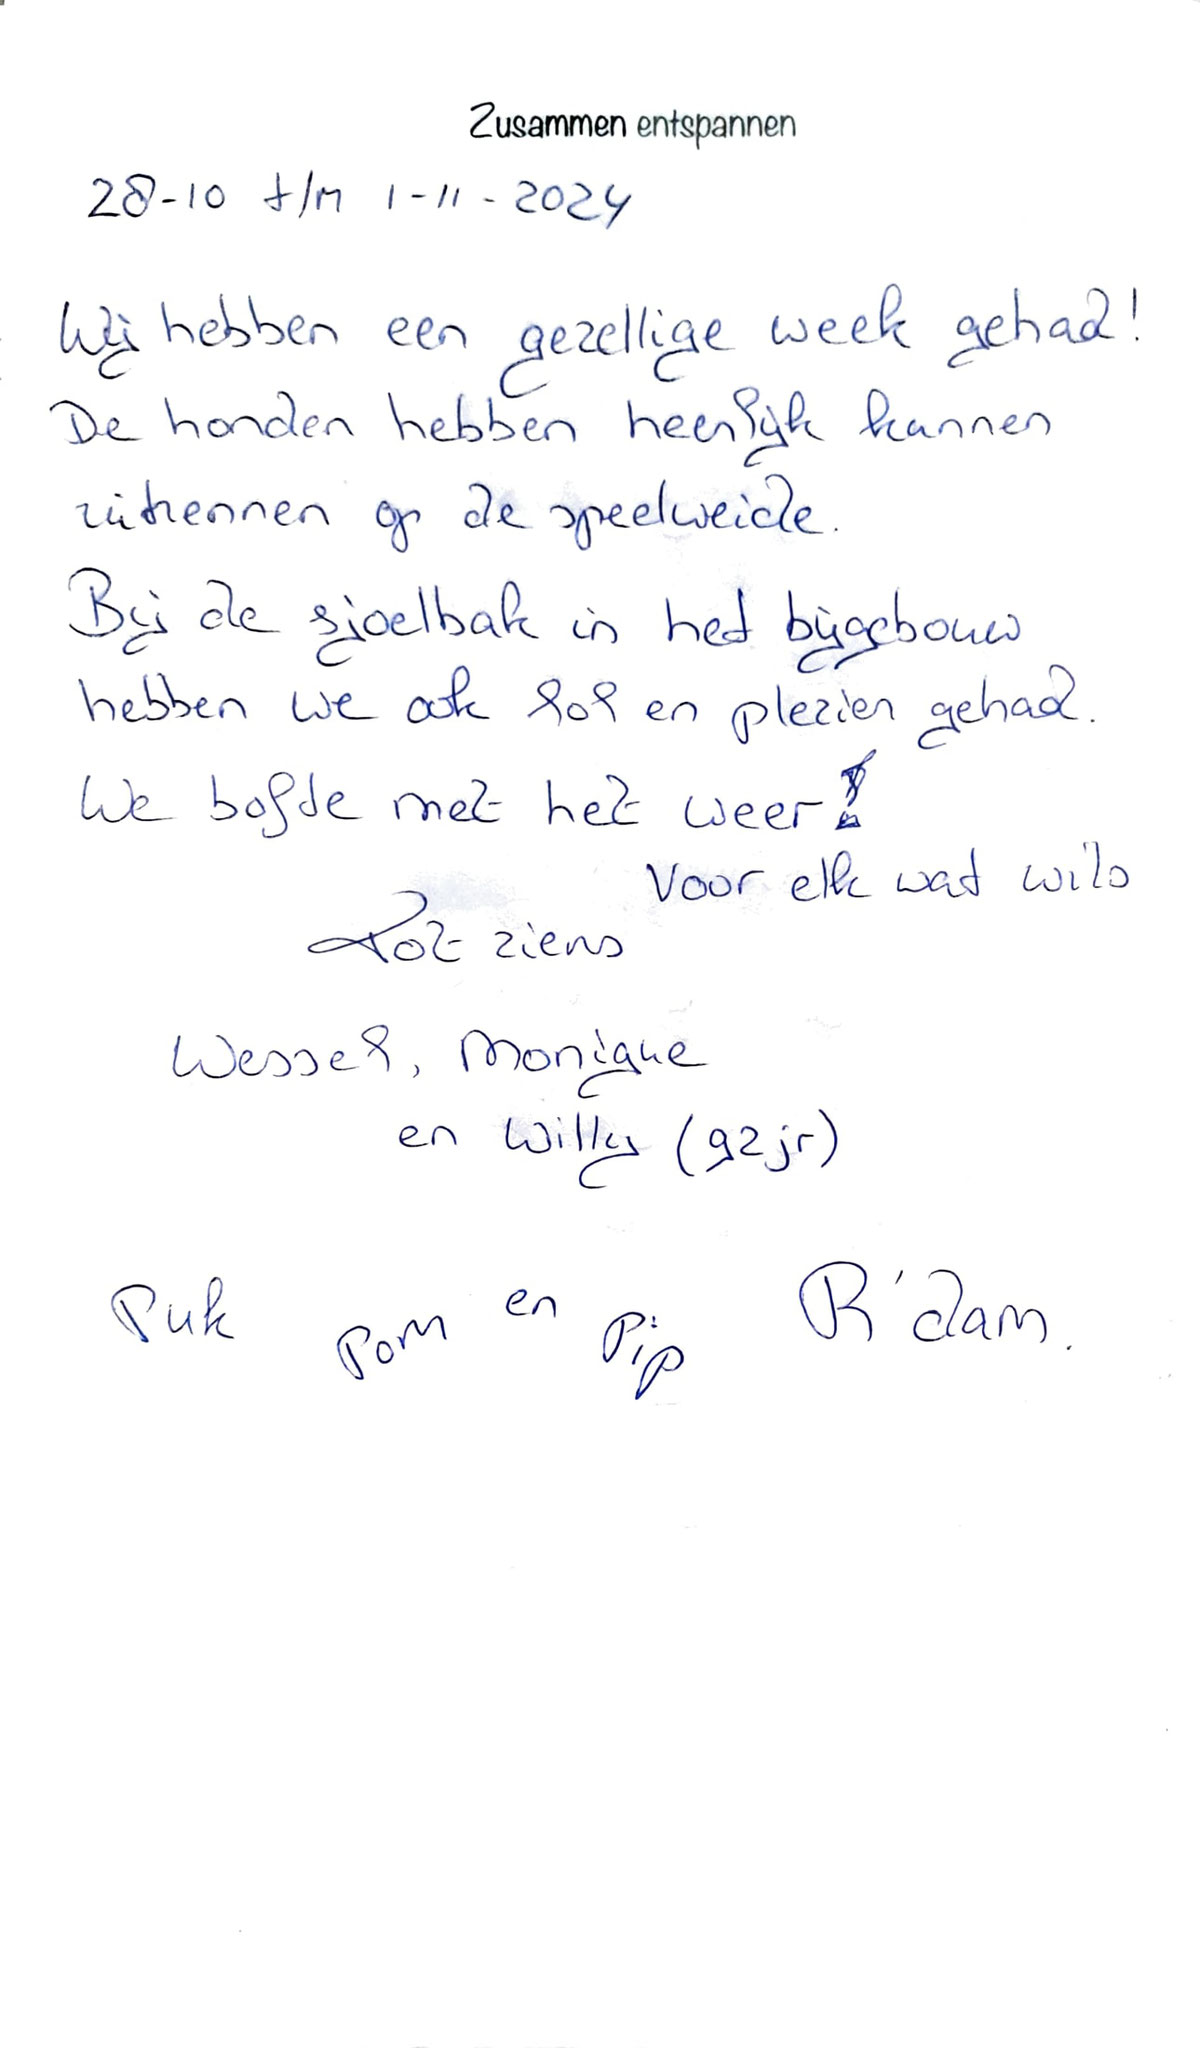 Zusammen entspannen
28-10 t/m 1-11-2024
Wij hebben een gezellige week gehad!
De honden hebben heerlijk kunnen
uitrennen op de speelweide.
Bij de sjoelbak in het bijgebouw
hebben we ook lol en plezier gehad.
We bofde met het weer!
Voor elk wat wils
Tot ziens
Wessel, Monique
en Willy (92jr)
Puk Pom en Pip R'dam.